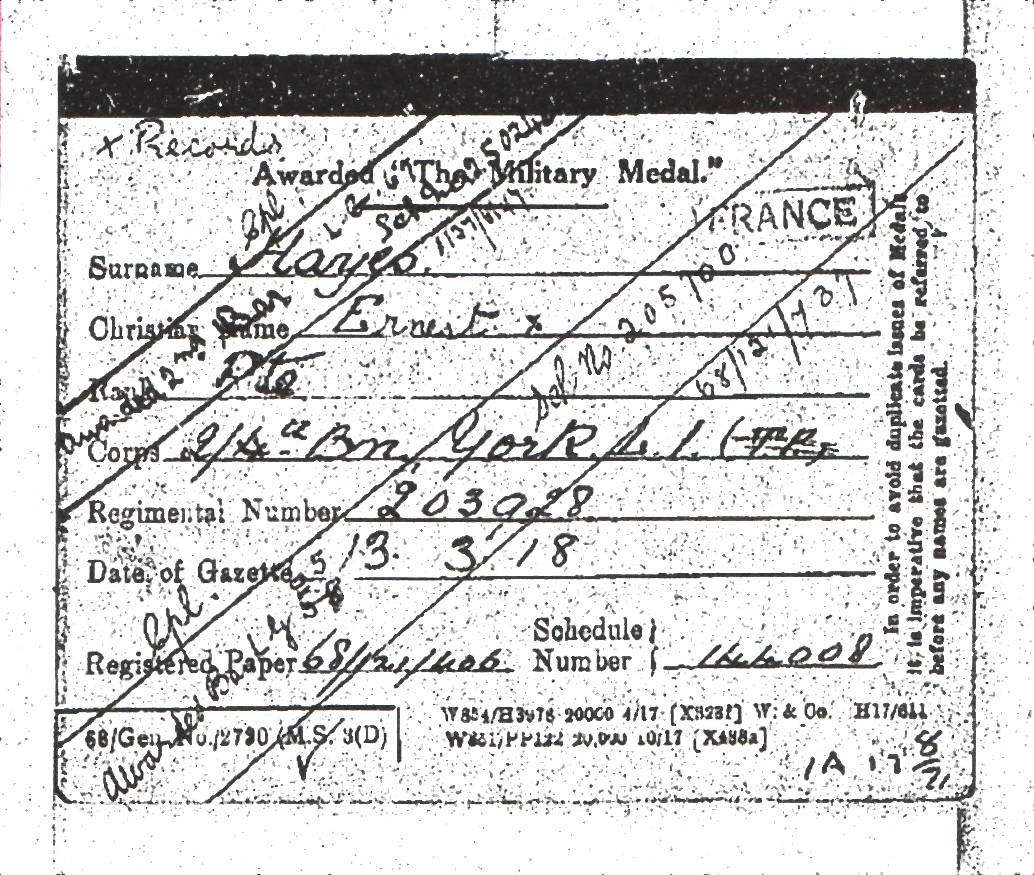 + Records
Awarded "The Military Medal."
FRANCE
Cpl.
Surname Hayes.
Christian Name Ernest. x
Rank Pte
Corps 2/4th Bn. York. L.I. (T.F.)
Regimental Number 203028
Date of Gazette 13. 3. 18
Registered Paper 68/121/406
Schedule Number 144008
68/Gen. No./2790 (M.S. 3(D)
W854/H3976 20000 4/17 [X323f] W. & Co. H17/611
20,000 10/17 [X488a]
1A 17
Awarded 2nd Bar
Sch. No 205700.
68/121/737
Cpl.
Awarded Bar
In order to avoid duplicate issues of Medals
it is imperative that the cards be referred to
before any names are gazetted.